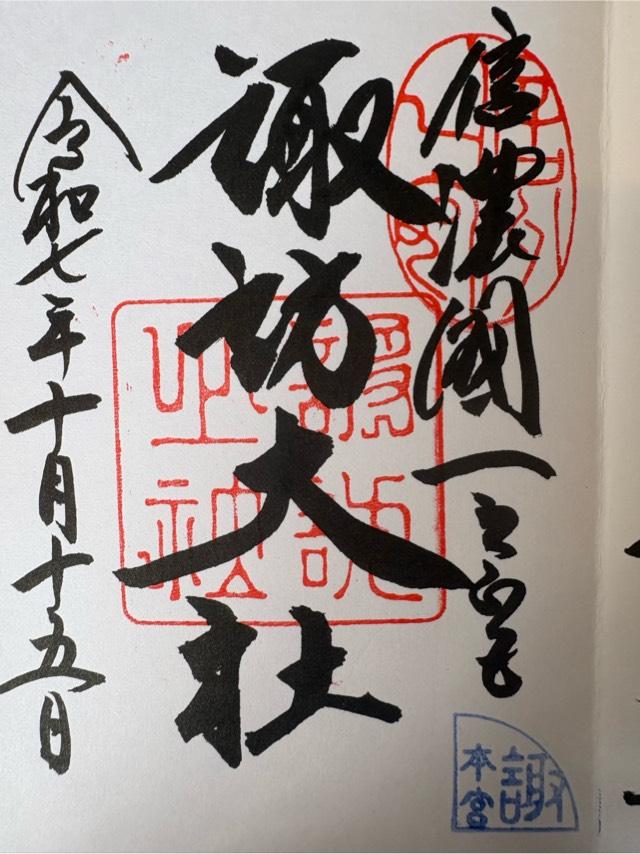 信濃國一之宮
諏訪大社
令和七年十月十五日
諏訪
本宮